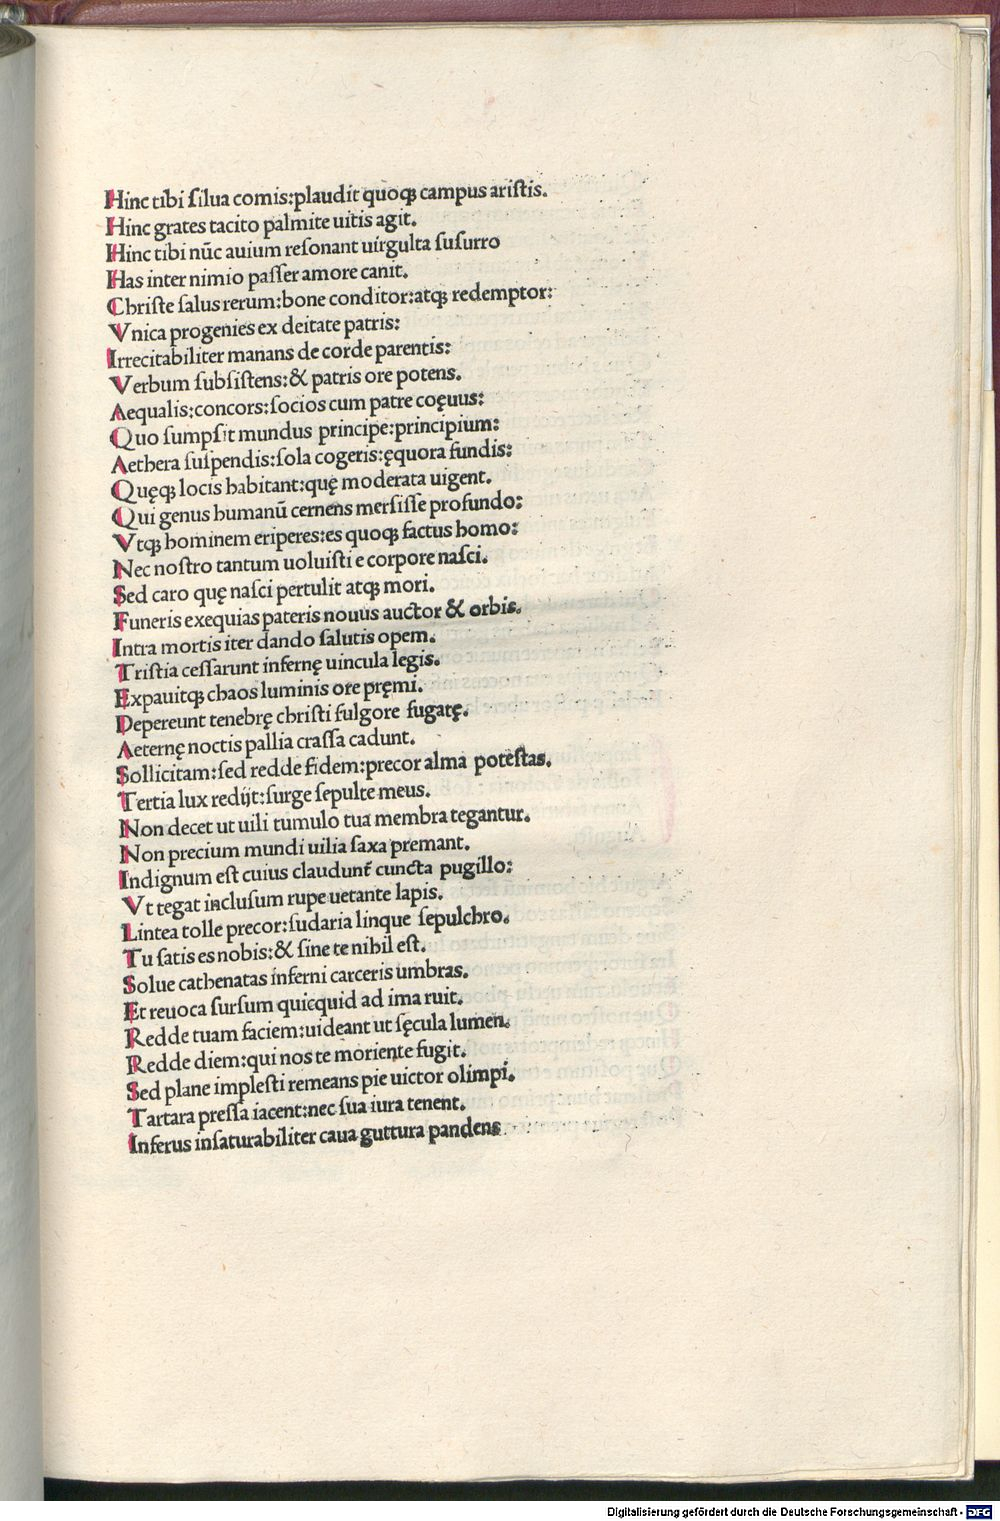 Hinc tibi ſilua comis:plaudit quoqꝫ campus ariſtis.
Hinc grates tacito palmite uitis agit.
Hinc tibi nūc auium reſonant uirgulta ſuſurro
Has inter nimio paſſer amore canit.
Chriſte ſalus rerum:bone conditor:atqꝫ redemptor:
Vnica progenies ex deitate patris:
Irrecitabiliter manans de corde parentis:
Verbum ſubſiſtens:& patris ore potens.
Aequalis:concors:ſocios cum patre coęuus:
Quo ſumpſit mundus principe:principium:
Aethera ſuſpendis:ſola cogeris:ęquora fundis:
Quęqꝫ locis habitant:quę moderata uigent.
Qui genus humanū cernens merſiſſe profundo:
Vtqꝫ hominem eriperes:es quoqꝫ factus homo:
Nec noſtro tantum uoluiſti e corpore naſci.
Sed caro quę naſci pertulit atqꝫ mori.
Funeris exequias pateris nouus auctor & orbis.
Intra mortis iter dando ſalutis opem.
Triſtia ceſſarunt infernę uincula legis.
Expauitqꝫ chaos luminis ore pręmi.
Depereunt tenebrę chriſti fulgore fugatę.
Aeternę noctis pallia craſſa cadunt.
Sollicitam:ſed redde fidem:precor alma poteſtas.
Tertia lux redijt:ſurge ſepulte meus.
Non decet ut uili tumulo tua membra tegantur.
Non precium mundi uilia ſaxa premant.
Indignum eſt cuius claudunt̄ cuncta pugillo:
Vt tegat incluſum rupe uetante lapis.
Lintea tolle precor:ſudaria linque ſepulchro.
Tu ſatis es nobis:& ſine te nihil eſt.
Solue cathenatas inferni carceris umbras.
Et reuoca ſurſum quicquid ad ima ruit.
Redde tuam faciem:uideant ut ſęcula lumen.
Redde diem:qui nos te moriente fugit.
Sed plane impleſti remeans pie uictor olimpi.
Tartara preſſa iacent:nec ſua iura tenent.
Inferus inſaturabiliter caua guttura pandens
Digitalisierung gefördert durch die Deutsche Forschungsgemeinschaft - DFG